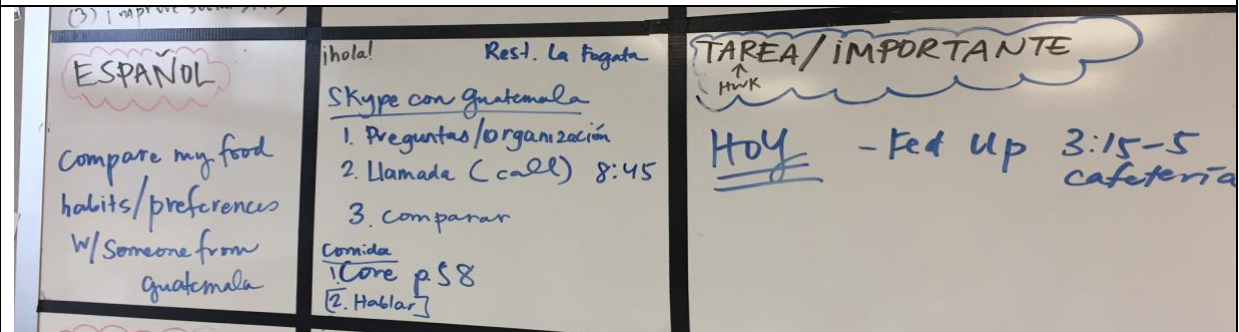 (3) Improve
ESPAÑOL
Compare my food
habits/preferences
w/ Someone from
guatemala
¡hola! Rest. La Fogata
Skype con guatemala
1. Preguntas/organización
2. Llamada (call) 8:45
3. comparar
Comida
1. Core p. 58
[2. Hablar]
TAREA/IMPORTANTE
↑
HWK
HOY - Fed Up 3:15-5
cafetería